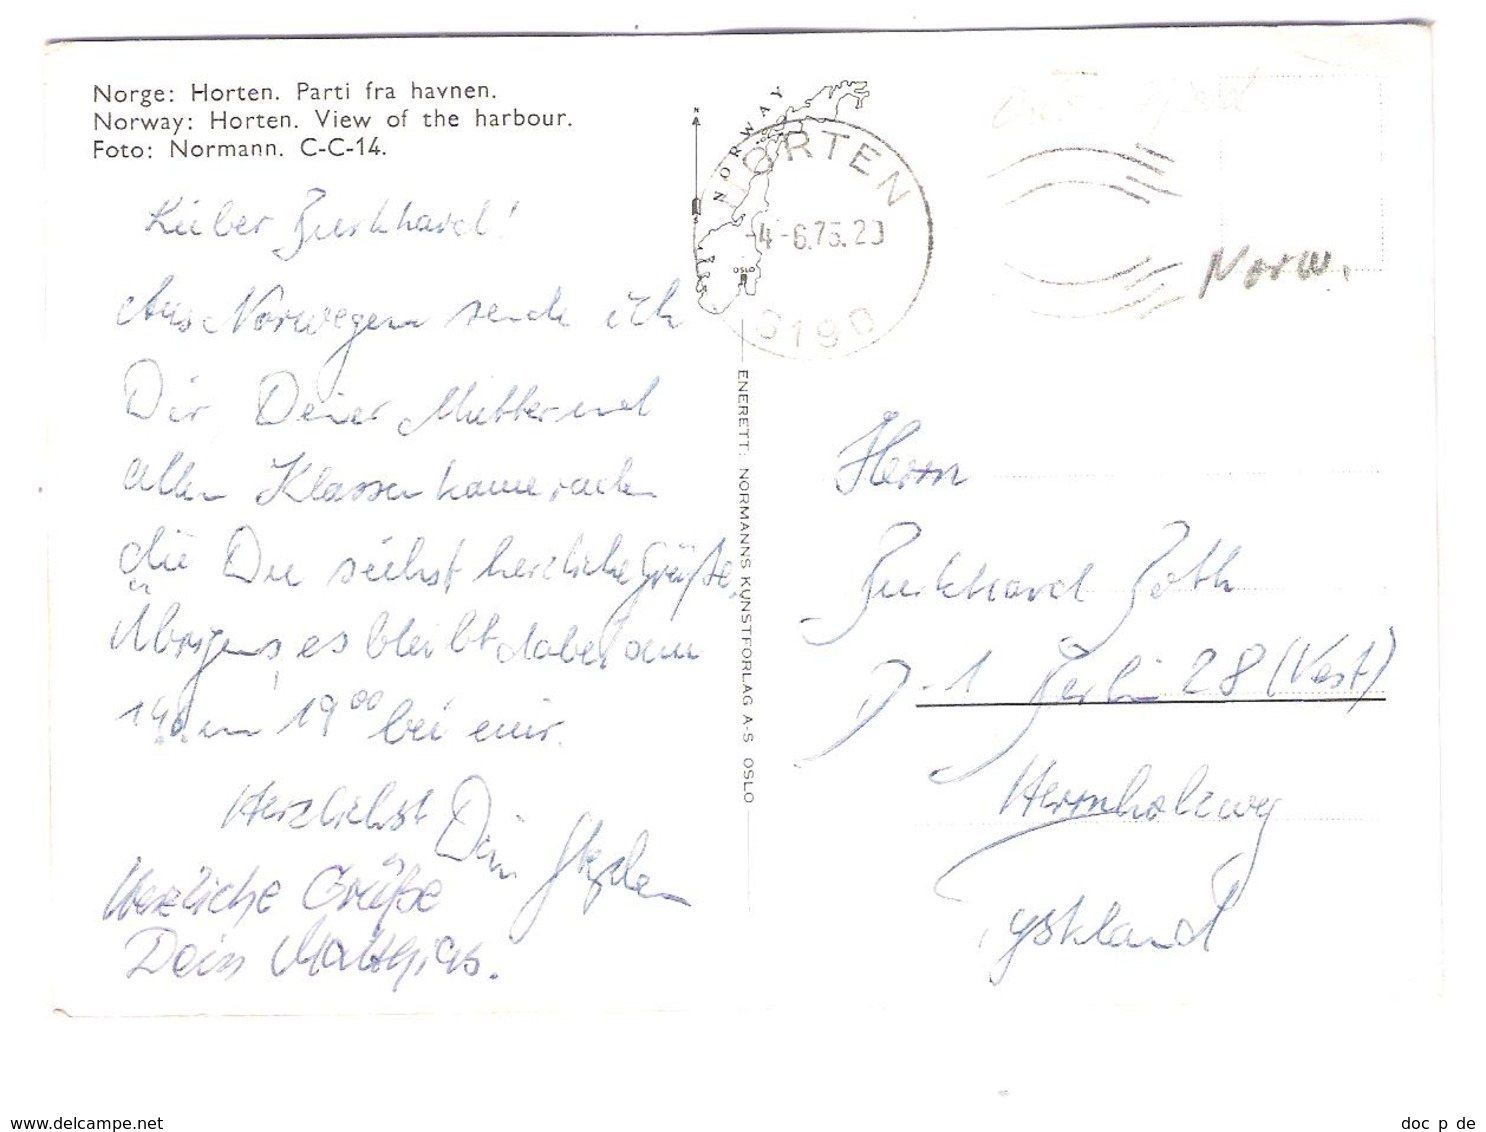 Norge: Horten. Parti fra havnen.
Norway: Horten. View of the harbour.
Foto: Normann. C-C-14.
Lieber Burkhard!
Aus Norwegen sende ich
Dir, Deiner Mutter und
allen Klassenkameraden
die Du siehst herzliche Grüße.
Übrigens, es bleibt dabei am
14. um 19⁰⁰ bei mir.
Herzlichst Dein
Herzliche Grüße
Dein Matthias.
NORWAY
N
S
OSLO
HORTEN
-4-6.75.20
3190
Norw.
ENERETT: NORMANNS KUNSTFORLAG A-S OSLO
Herrn
Burkhard
D-1 Berlin 28 (Vest)
Herrnholzweg
Tyskland
www.delcampe.net
doc_p_de